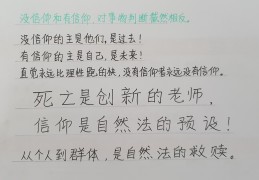 没信仰和有信仰，对事物判断截然相反。
没信仰的主是他们，是过去！
有信仰的主是自己，是未来！
直觉永远比理性跑的快，没有信仰者永远没有信仰。
死亡是创新的老师，
信仰是自然法的预设！
从个人到群体，是自然法的救赎。